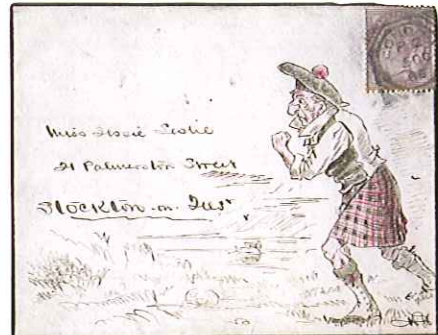 Miss Jessie Leslie
21 Palmerston Street
Stockton-on-Tees